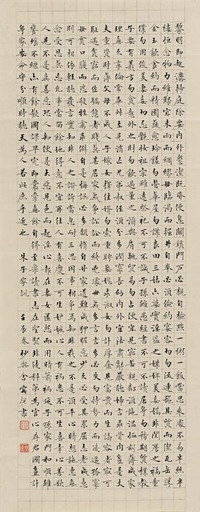 黎明即起灑掃庭除要內外整潔既昏便息關鎖門戶必親自檢點一粥一飯當思來處不易半絲半
縷恆念物力維艱宜未雨而綢繆毋臨渴而掘井自奉必須儉約宴客切勿留連器具質而潔瓦缶勝
金玉飲食約而精園蔬愈珍饈勿營華屋勿謀良田三姑六婆實淫盜之媒婢美妾嬌非閨房之福
僕勿用俊美妻妾切忌艷妝祖宗雖遠祭祀不可不誠子孫雖愚經書不可不讀居身務期質樸教
子要有義方勿貪意外之財勿飲過量之酒與肩挑貿易毋佔便宜見貧苦親鄰須加溫恤刻薄成家
理無久享倫常乖舛立見消亡兄弟叔姪須分多潤寡長幼內外宜法肅辭嚴聽婦言乖骨肉豈是丈
夫重資財薄父母不成人子嫁女擇佳婿毋索重聘娶媳求淑女勿計厚奩見富貴而生諂容者最可恥
遇貧窮而作驕態者賤莫甚居家戒爭訟訟則終凶處世戒多言言多必失勿恃勢力而凌逼孤寡
毋貪口腹而恣殺生禽乖僻自是悔誤必多頹惰自甘家道難成狎昵惡少久必受其累屈志老成急
則可相依輕聽發言安知非人之譖愬當忍耐三思因事相爭焉知非我之不是須平心暗想施惠勿
念受恩莫忘凡事當留餘地得意不宜再往人有喜慶不可生妒忌心人有禍患不可生喜幸心善欲
人見不是真善惡恐人知便是大惡見色而起淫心報在妻女匿怨而用暗箭禍延子孫家門和順雖
饔飧不繼亦有餘歡國課早完即囊橐無餘自得至樂讀書志在聖賢非徒科第為官心存君國豈計
身家守分安命順時聽天為人若此庶乎近焉 朱子家訓